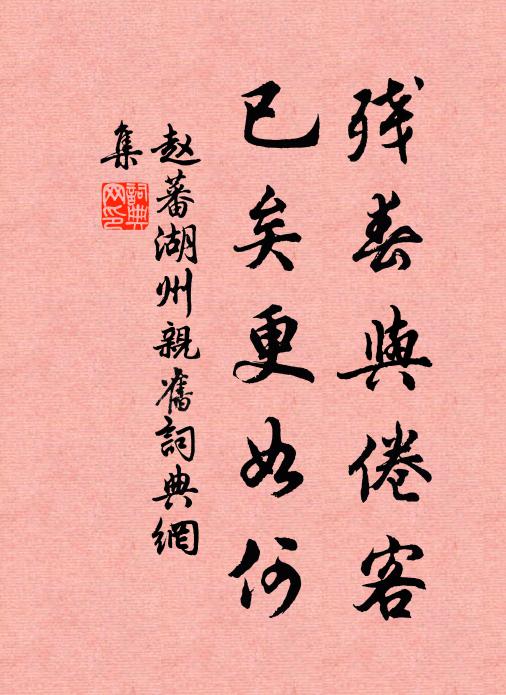 残春與倦客
已矣更如何
赵蕃湖州親舊詞典網
集
詞典
网印